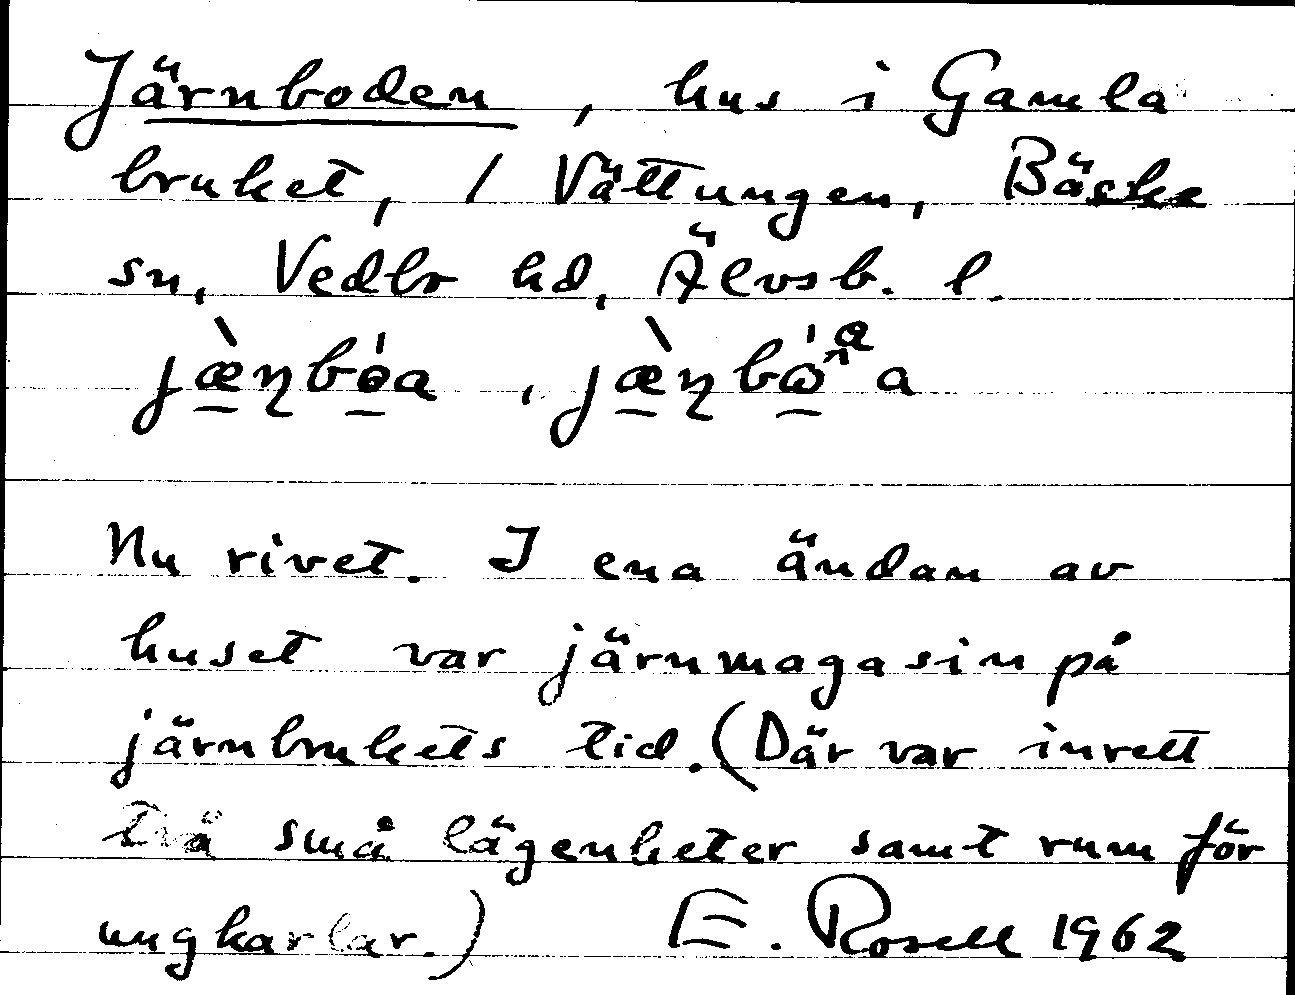 Järnboden, hus i Gamla
bruket, / Vättungen, Bäcke
sn, Vedbo hd, Älvsb. l.
jæ̀ɳbɵ́a, jæ̀ɳbɷ́ᵃa
Nu rivet. I ena ändan av
huset var järnmagasin på
järnbrukets tid. (Där var inrett
två små lägenheter samt rum för
ungkarlar.) E. Rosell 1962